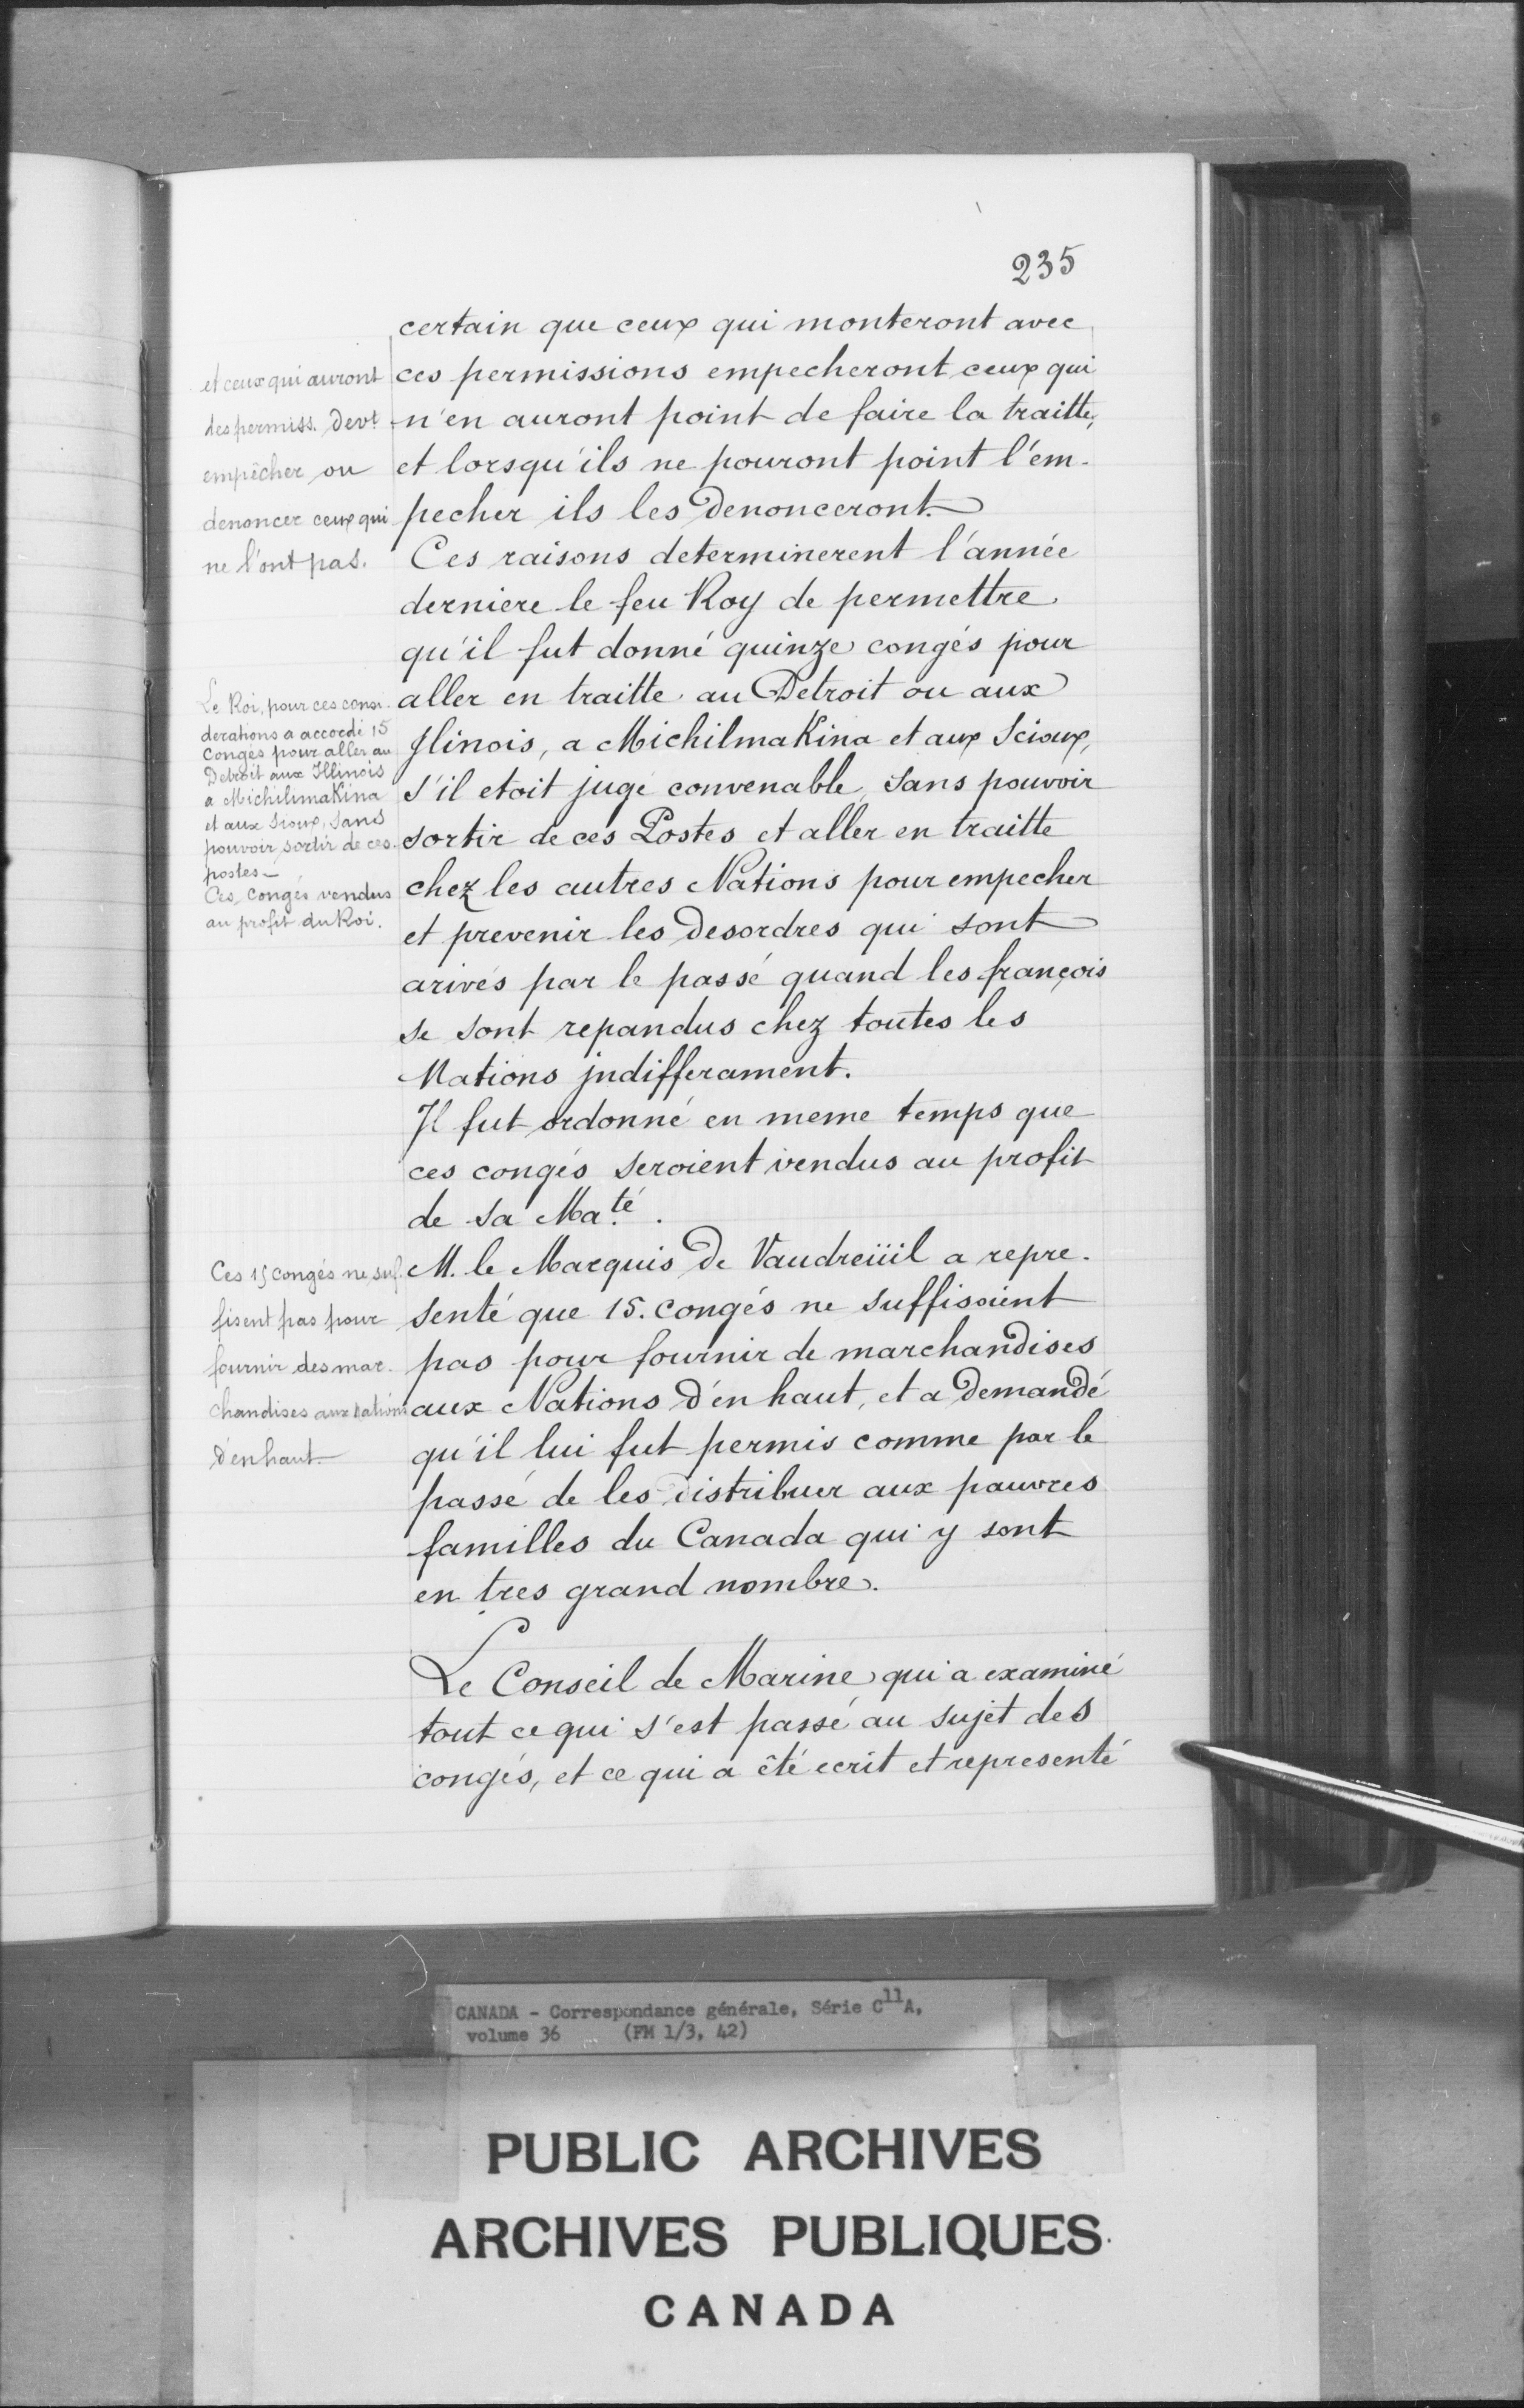 235
certain que ceux qui monteront avec
ces permissions empecheront ceux qui
n'en auront point de faire la traitte,
et lorsqu'ils ne pouront point l'em-
pecher ils les Denonceront.
et ceux qui auront
des permiss. Devt
empêcher ou
denoncer ceux qui
ne l'ont pas.
Ces raisons determinerent l'année
derniere le feu Roy de permettre
qu'il fut donné quinze congés pour
aller en traitte au Detroit ou aux
Jlinois, a MichilmaKina et aux Scioux,
s'il etoit jugé convenable, sans pouvoir
sortir de ces Postes et aller en traitte
chez les autres Nations pour empecher
et prevenir les Desordres qui sont
arivés par le passé quand les françois
se sont repandus chez toutes les
Nations jndifferament.
Le Roi, pour ces consi-
derations a accordé 15
Congés pour aller au
Detroit aux Illinois
a MichilimaKina
et aux Sioux, sans
pouvoir sortir de ces
postes_
Ces congés vendus
au profit du Roi.
Il fut ordonné en meme temps que
ces congés seroient vendus au profit
de sa Ma.té.
M. le Marquis De Vaudreüil a repre-
senté que 15. congés ne suffisoient
pas pour fournir de marchandises
aux Nations D'en haut, et a Demandé
qu'il lui fut permis comme par le
passé de les distribuer aux pauvres
familles du Canada qui y sont
en tres grand nombre.
Ces 15 congés ne suf-
fisent pas pour
fournir des mar-
chandises aux nations
D'en haut
Le Conseil de Marine qui a examiné
tout ce qui s'est passé au sujet des
congés, et ce qui a êté ecrit et representé
CANADA - Correspondance générale, Série C11A,
volume 36 (FM 1/3, 42)
PUBLIC ARCHIVES
ARCHIVES PUBLIQUES
CANADA